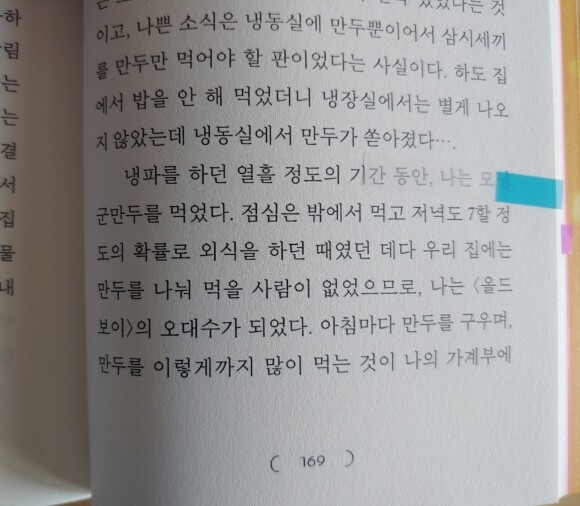 이고, 나쁜 소식은 냉동실에 만두뿐이어서 삼시세끼
를 만두만 먹어야 할 판이었다는 사실이다. 하도 집
에서 밥을 안 해 먹었더니 냉장실에서는 별게 나오
지 않았는데 냉동실에서 만두가 쏟아졌다….
냉파를 하던 열흘 정도의 기간 동안, 나는
군만두를 먹었다. 점심은 밖에서 먹고 저녁도 7할 정
도의 확률로 외식을 하던 때였던 데다 우리 집에는
만두를 나눠 먹을 사람이 없었으므로, 나는 〈올드
보이〉의 오대수가 되었다. 아침마다 만두를 구우며,
만두를 이렇게까지 많이 먹는 것이 나의 가계부에
( 169 )